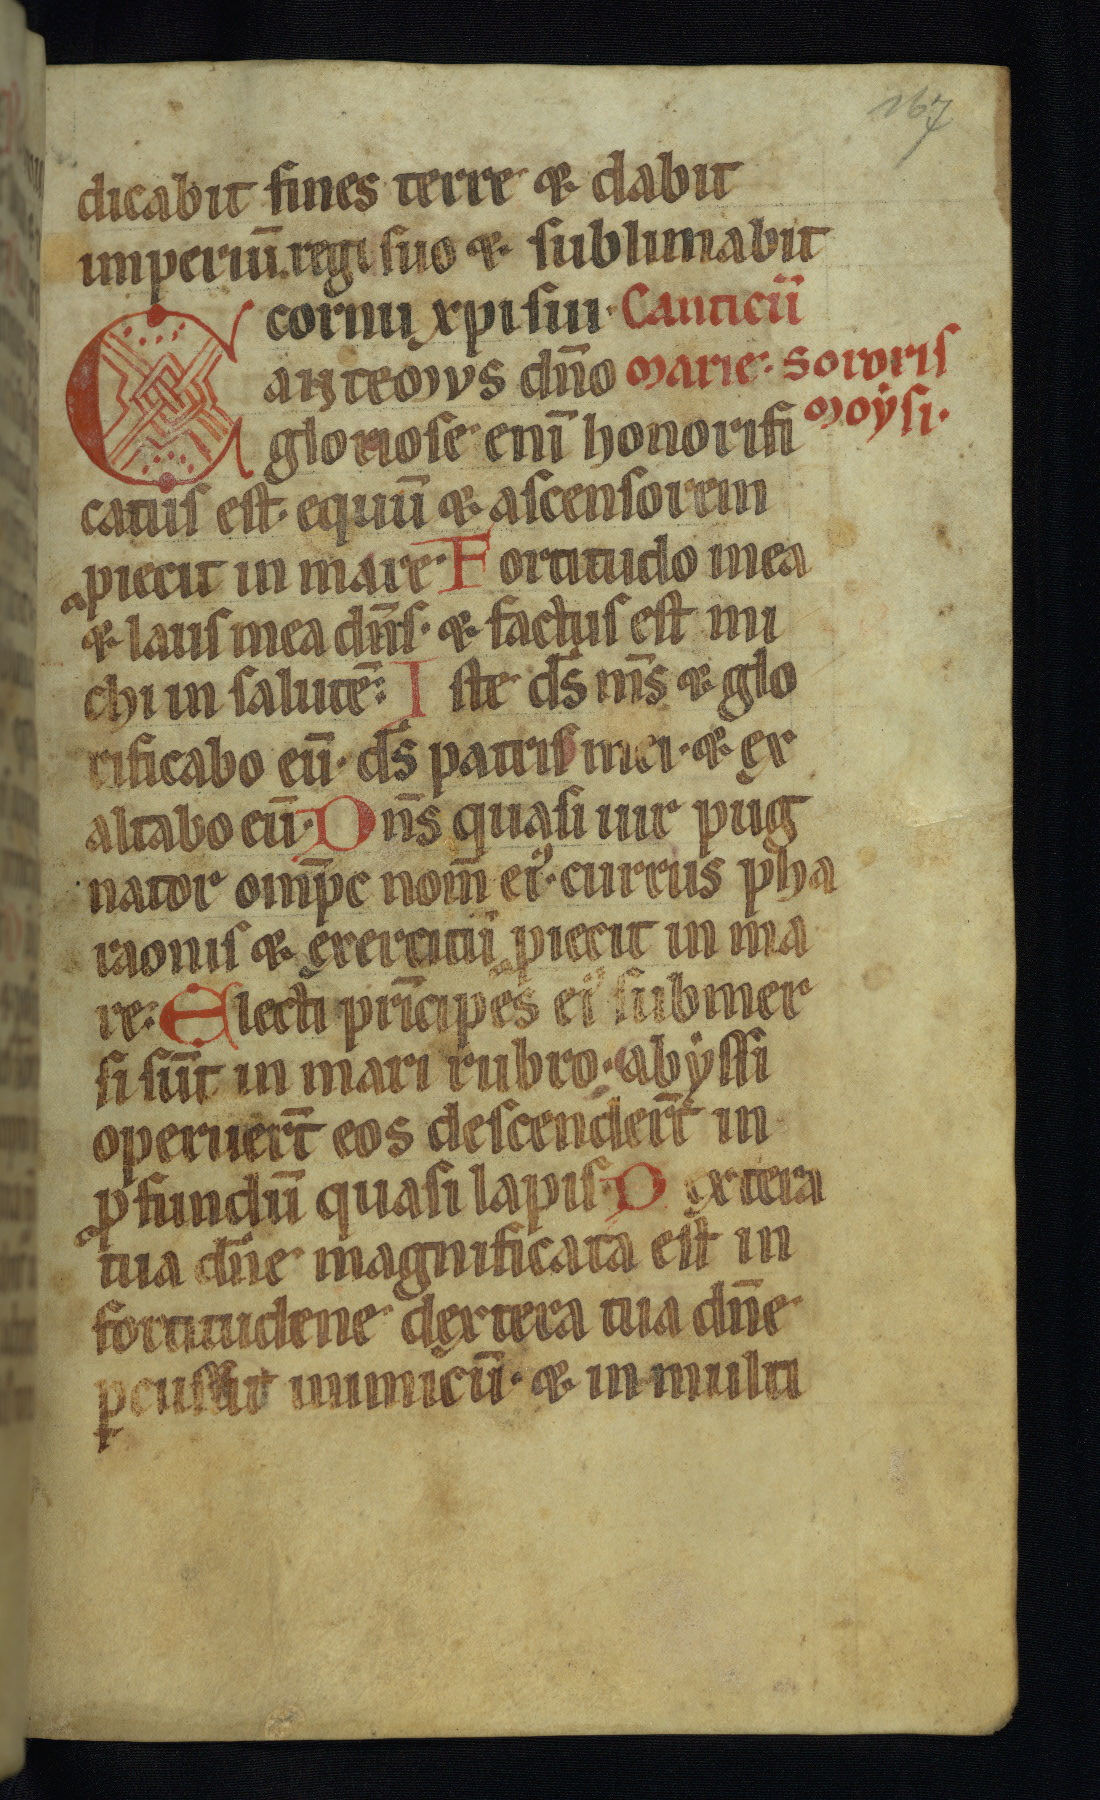 167
dicabit fines terre & dabit
imperiū regi suo & sublimabit
cornu xpi sui· Canticū
CANTEMVS dn̄o Marie· Sororis
gloriose enī honorifi Moysi·
catus est· equū & ascensorem
piecit in mare· Fortitudo mea
& laus mea dn̄s· & factus est mi
chi in salutē: Iste ds̄ ms̄ & glo
rificabo eū· ds̄ patris mei· & ex
altabo eū· Dn̄s quasi uir pug
nator omp̄c nom̄ ei᾿· currus pha
raonis & exercitū piecit in ma
re: Electi prīcipes ei᾿ submer
si sūt in mari rubro· abyssi
operuert̄ eos descendert̄ in
pfundū quasi lapis· Dextera
tua dn̄e magnificata est in
fortitudene dextera tua dn̄e
pcussit inimicū· & in multi